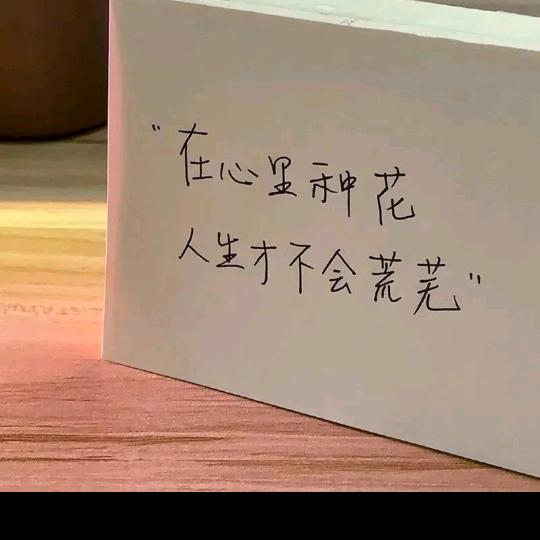 "在心里种花
人生才不会荒芜"